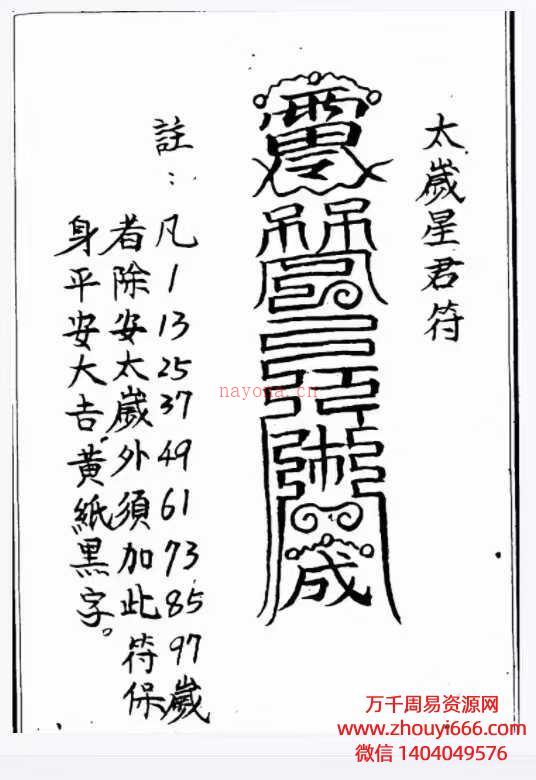 太歲星君符
註：凡1 13 25 37 49 61 73 85 97歲
者除安太歲外須加此符保
身平安大吉，黃紙黑字。
nayona.cn
万千周易资源网
www.zhouyi666.com
微信 1404049576